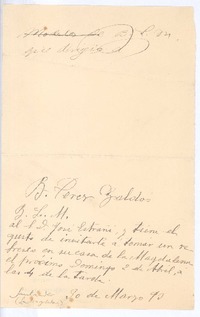 B. L. M.
que dirigía
B. Perez Galdós
B. L. M.
al S. D. Jose Estrañi, y tiene el
gusto de invitarle á tomar un re
fresco en su casa de la Magdalena
el próximo Domingo 2 de Abril, a
las 4 de la tarde.
30 de Marzo 93